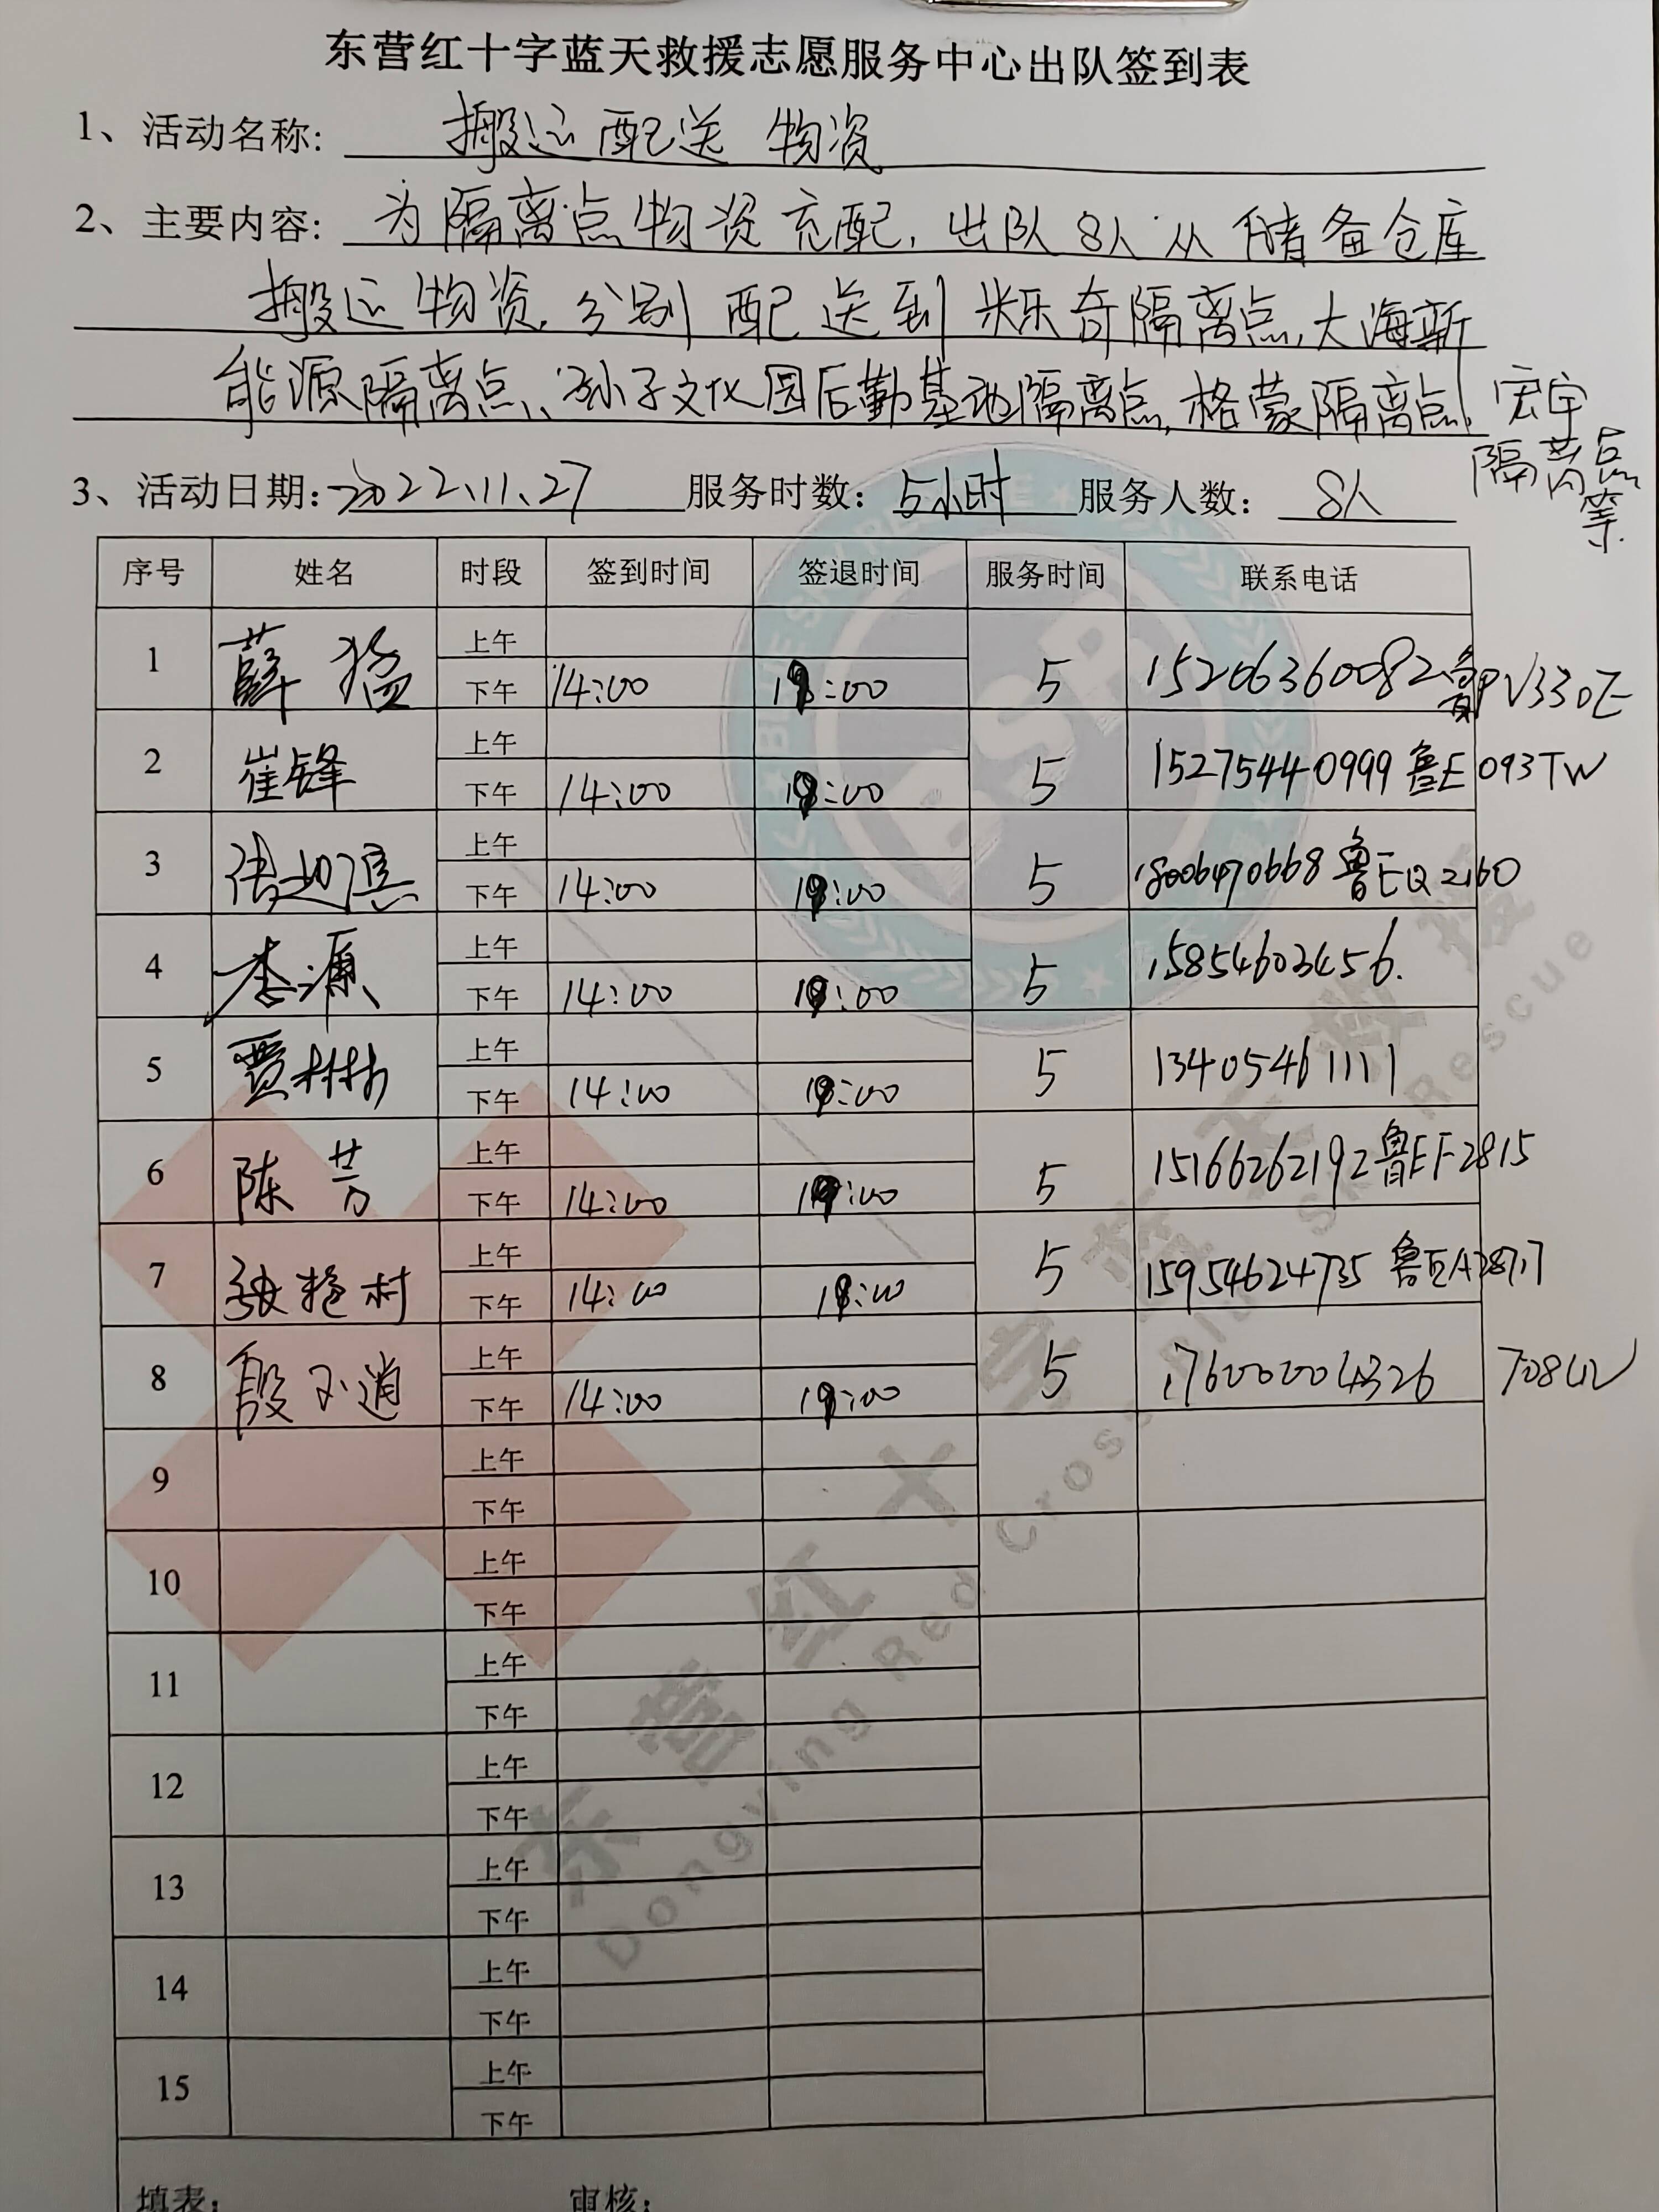 东营红十字蓝天救援志愿服务中心出队签到表
1、活动名称: 搬运配送物资
2、主要内容: 为隔离点物资充配,出队8人从储备仓库
搬运物资,分别配送到米乐奇隔离点,大海新
能源隔离点、孙子文化园后勤基地隔离点,格蒙隔离点,宏宇
隔离点
等.
3、活动日期: 2022.11.27 服务时数: 5小时 服务人数: 8人
序号 姓名 时段 签到时间 签退时间 服务时间 联系电话
1 薛猛 上午
下午 14:00 19:00 5 15206360082 鲁PV330E
2 崔锋 上午
下午 14:00 19:00 5 15275440999 鲁E093TW
3 上午
下午 14:00 19:00 5 18006470668 鲁EQ2160
4 李源 上午
下午 14:00 19:00 5 15854603456.
5 贾彬彬 上午
下午 14:00 19:00 5 13405461111
6 陈芳 上午
下午 14:00 19:00 5 15166262192 鲁EF2815
7 张艳村 上午
下午 14:00 19:00 5 15954624735 鲁EA28717
8 上午
下午 14:00 19:00 5 17600004326
9 上午
下午
10 上午
下午
11 上午
下午
12 上午
下午
13 上午
下午
14 上午
下午
15 上午
下午
填表: 审核:
BLUE SKY RESCUE
BSR
东营红十字蓝天救援
Dongying Red Cross Blue Sky Rescue